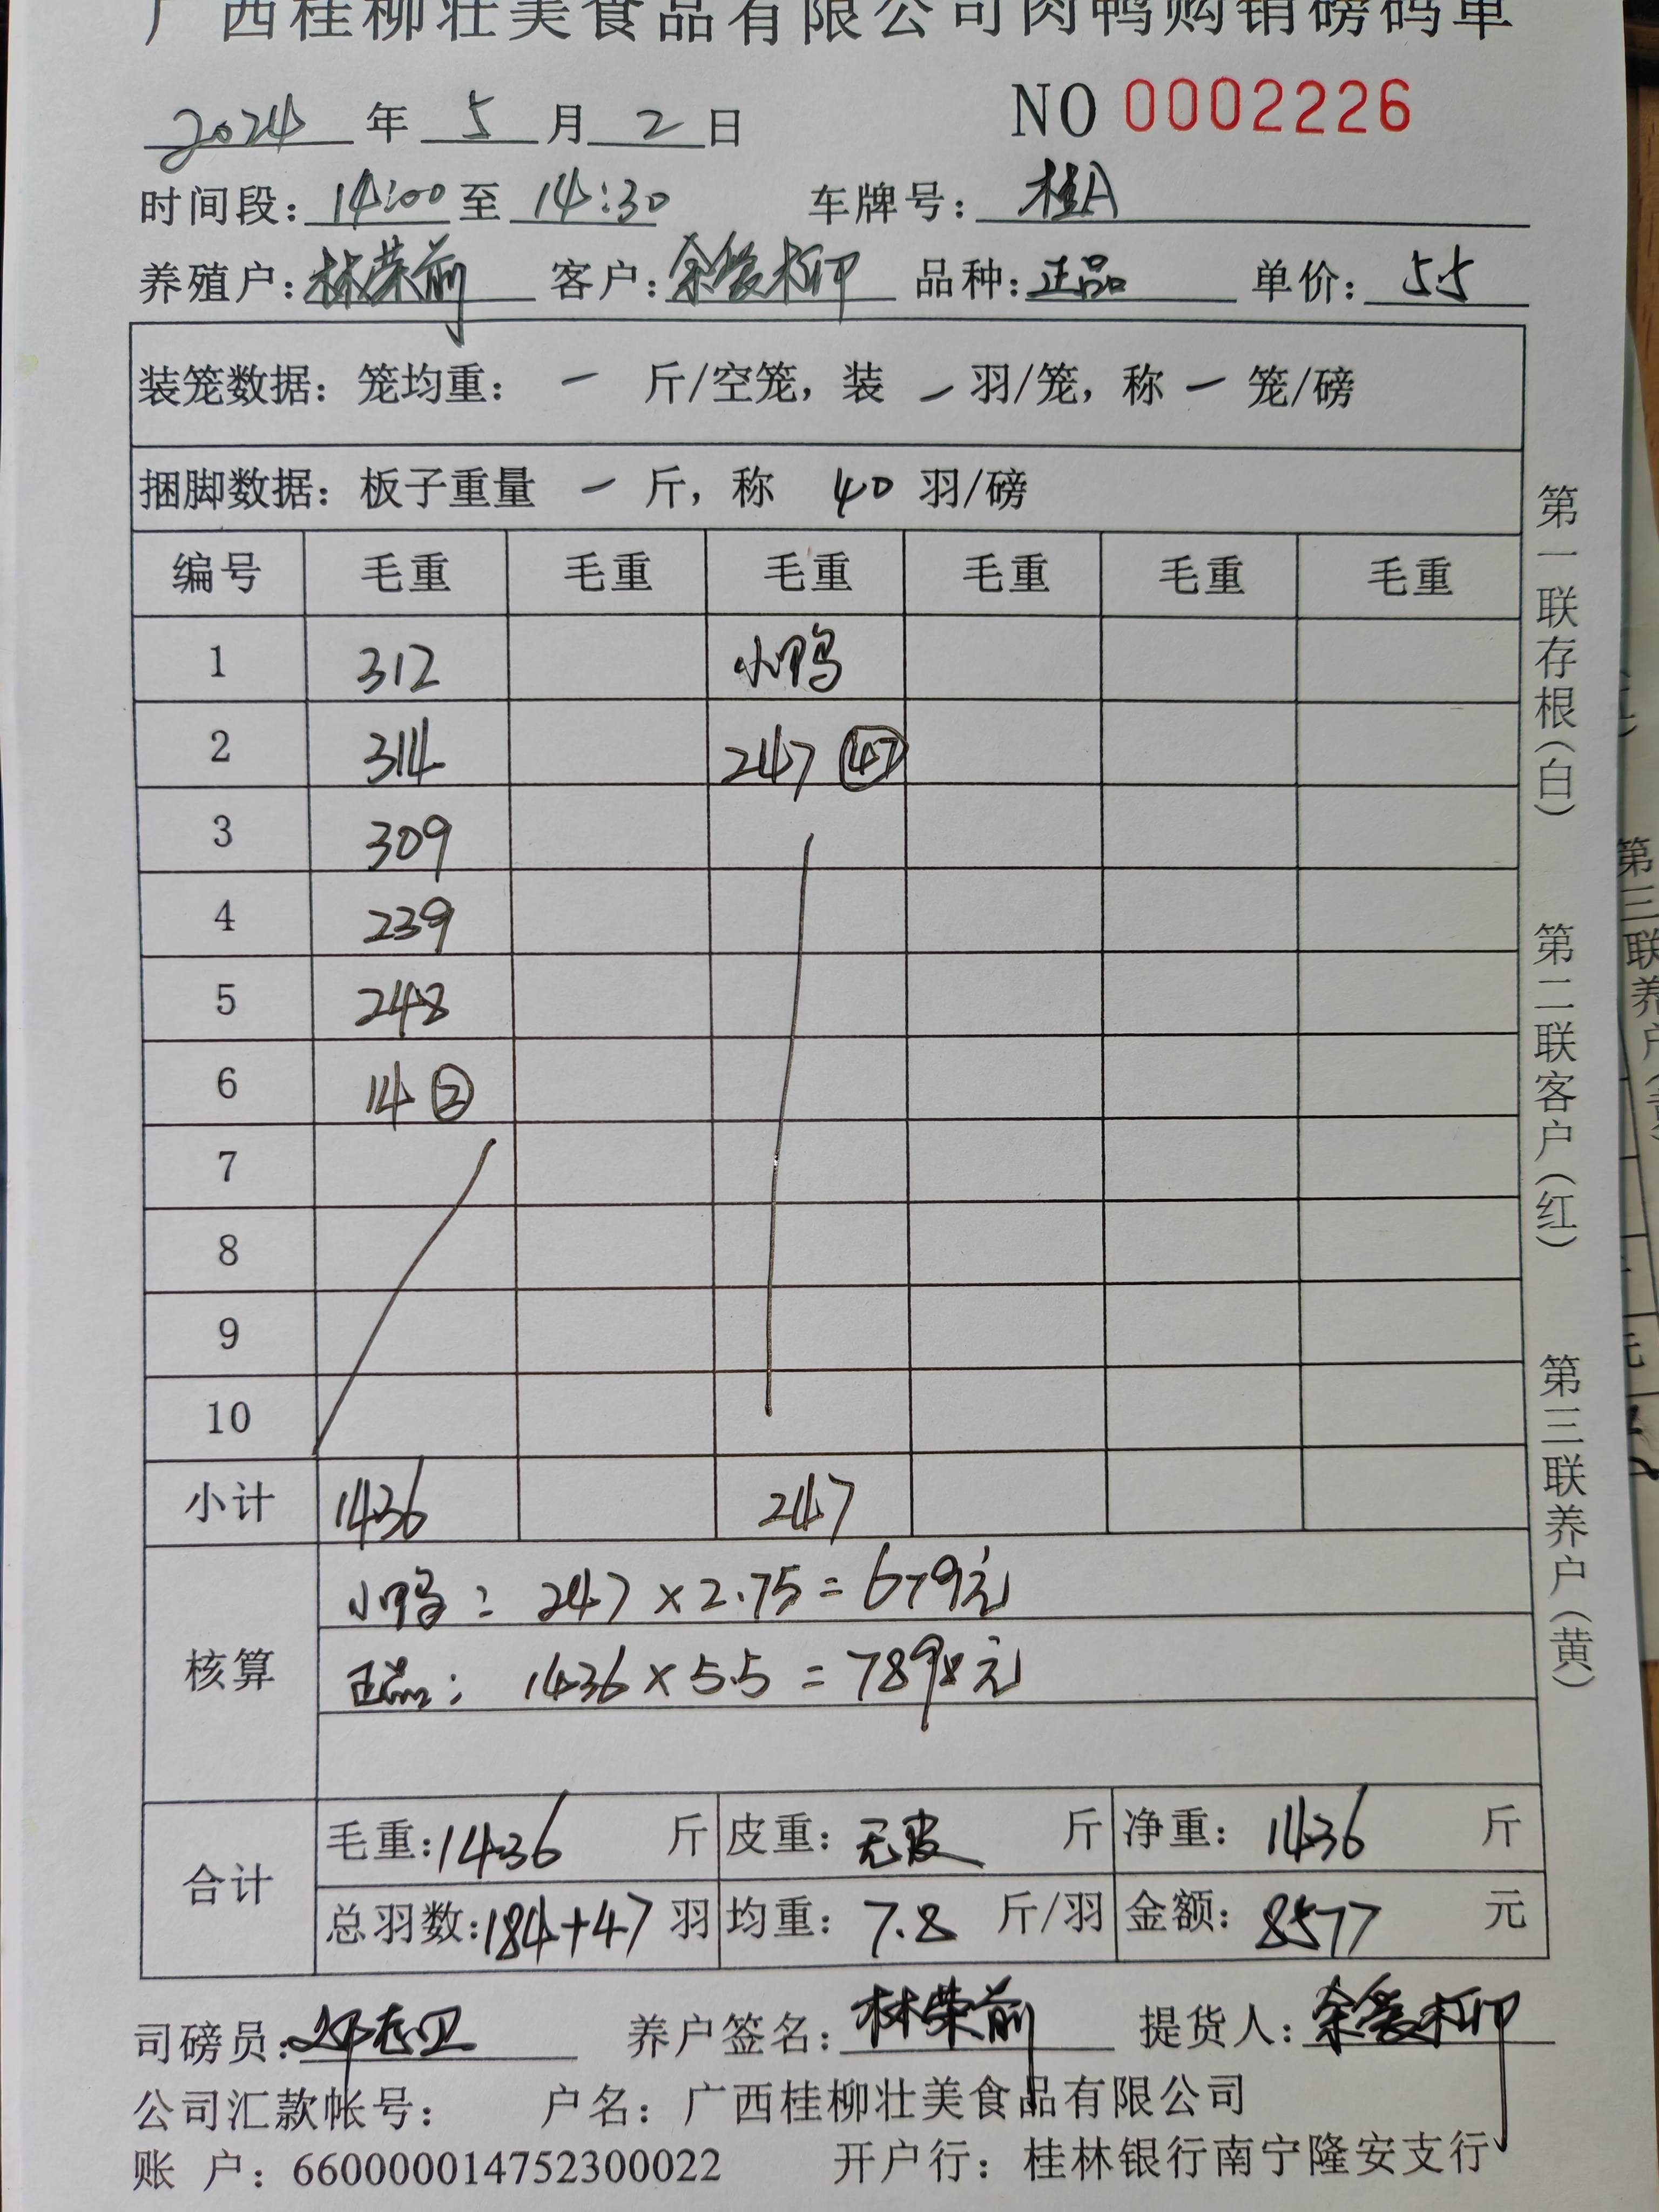 广西桂柳壮美食品有限公司肉鸭购销磅码单
2024 年 5 月 2 日 NO 0002226
时间段: 14:00 至 14:30 车牌号: 桂A
养殖户: 林荣前 客户: 余爱柳 品种: 正品 单价: 5.5
装笼数据: 笼均重: — 斤/空笼, 装 — 羽/笼, 称 — 笼/磅
捆脚数据: 板子重量 — 斤, 称 40 羽/磅
编号 毛重 毛重 毛重 毛重 毛重 毛重
1 312 小鸭
2 314 247 ㊼
3 309
4 239
5 248
6 14 ②
7
8
9
10
小计 1436 247
核算
小鸭: 247 × 2.75 = 679元
正品: 1436 × 5.5 = 7898元
合计
毛重: 1436 斤 皮重: 无皮 斤 净重: 1436 斤
总羽数: 184+47 羽 均重: 7.8 斤/羽 金额: 8577 元
司磅员: 养户签名: 林荣前 提货人: 余爱柳
公司汇款帐号: 户名: 广西桂柳壮美食品有限公司
账 户: 660000014752300022 开户行: 桂林银行南宁隆安支行
第一联存根(白) 第二联客户(红) 第三联养户(黄)
第三联养户(黄)